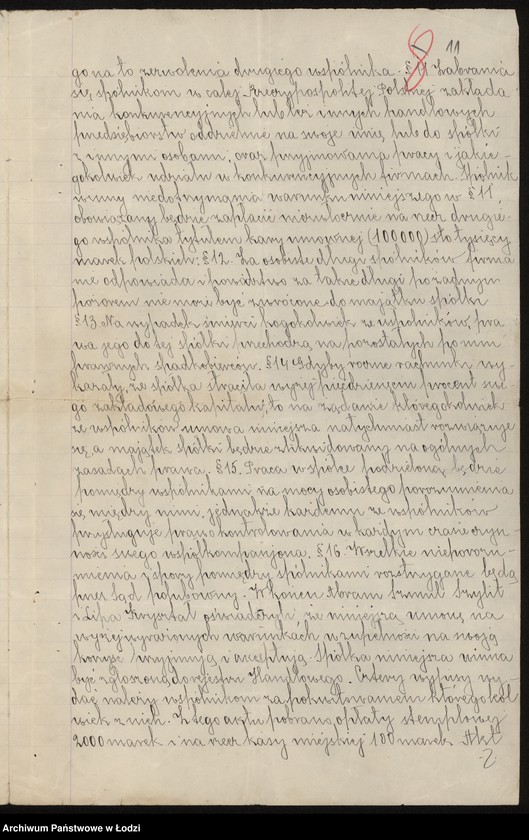 11
go na to zezwolenia drugiego wspólnika. § 11. Zabrania
się spólnikom w całej Rzeczypospolitej Polskiej zakłada-
nia konkurencyjnych lub też innych handlowych
przedsiębiorstw oddzielnie na swoje imię lub do spółki
z innymi osobami, oraz przyjmowania pracy i jakie-
gokolwiek udziału w konkurencyjnych firmach. Spólnik
winny niedotrzymania warunku niniejszego w § 11
obowiązany będzie zapłacić niezwłocznie na rzecz drugie-
go wspólnika tytułem kary umownej (100000) sto tysięcy
marek polskich. § 12. Za osobiste długi spólników firma
nie odpowiada i powództwo za takie długi pod żadnym
pozorem nie może być zwrócone do majątku spółki
§ 13. Na wypadek śmierci kogokolwiek ze wspólników, pra-
wa jego do tej spółki przechodzą na pozostałych po nim
prawnych spadkobierców. § 14 Gdyby roczne rachunki wy-
kazały, że spółka straciła wyżej pięćdziesięciu procent swe-
go zakładowego kapitału, to na żądanie któregokolwiek
ze wspólników umowa niniejsza natychmiast rozwiązuje
się, a majątek spółki będzie zlikwidowany na ogólnych
zasadach prawa. § 15. Praca w spółce podzielona będzie
pomiędzy wspólnikami na mocy osobistego porozumienia
się między nimi, jednakże każdemu ze wspólników
przysługuje prawo kontrolowania w każdym czasie czyn-
ności swego współkompanjona. § 16. Wszelkie nieporozu-
mienia i spory pomiędzy spólnikami rozstrzygane będą
przez Sąd polubowny. W końcu Abram Szmul Szylit
i Lipa Kryształ oświadczyli, że niniejszą umowę na
wyżej wyrażonych warunkach w zupełności na swoją
korzyść przyjmują i akceptują. Spółka niniejsza winna
być zgłoszoną do rejestru Handlowego. Cztery wypisy wy-
dać należy wspólnikom za pokwitowaniem któregokol-
wiek z nich. Z tego aktu pobrano, opłaty stemplowej
2000 marek i na rzecz kasy miejskiej 100 marek. Akt
Archiwum Państwowe w Łodzi